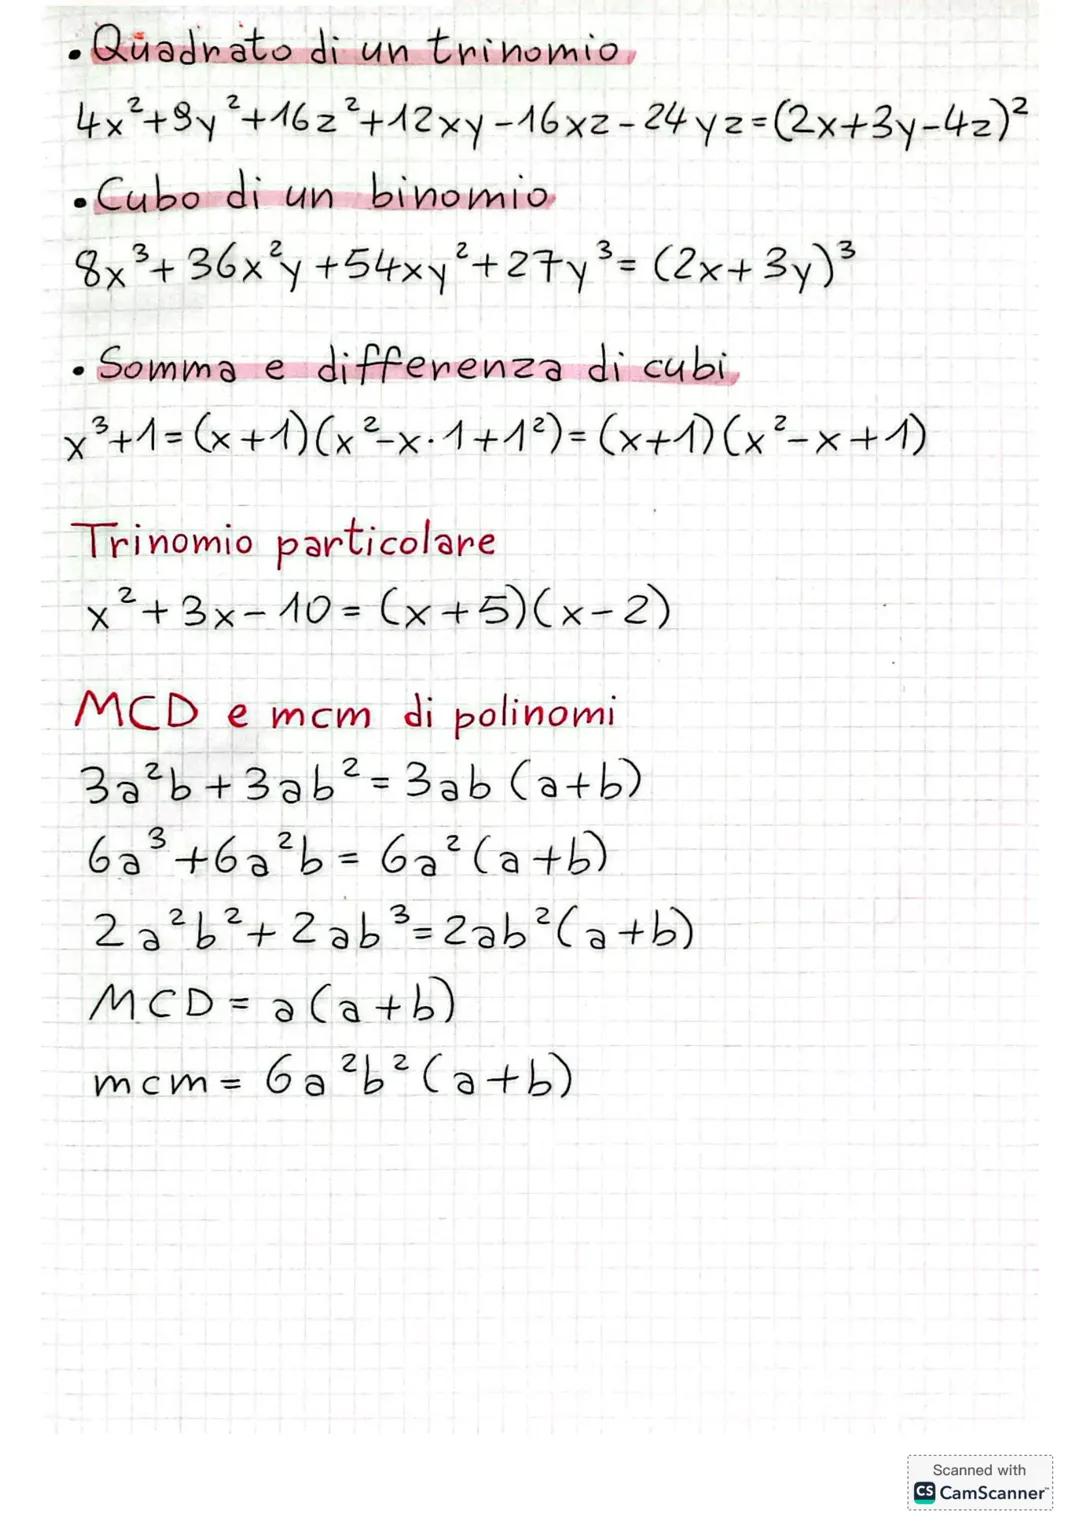 • Quadrato di un trinomio
4x²+9y²+16z²+12xy-16xz-24yz=(2x+3y-4z)²
• Cubo di un binomio
8x³+36x²y+54xy²+27y³=(2x+3y)³
• Somma e differenza di cubi
x³+1=(x+1)(x²-x·1+1²)=(x+1)(x²-x+1)
Trinomio particolare
x²+3x-10=(x+5)(x-2)
MCD e mcm di polinomi
3a²b+3ab²=3ab(a+b)
6a³+6a²b=6a²(a+b)
2a²b²+2ab³=2ab²(a+b)
MCD=a(a+b)
mcm=6a²b²(a+b)
Scanned with
CS CamScanner